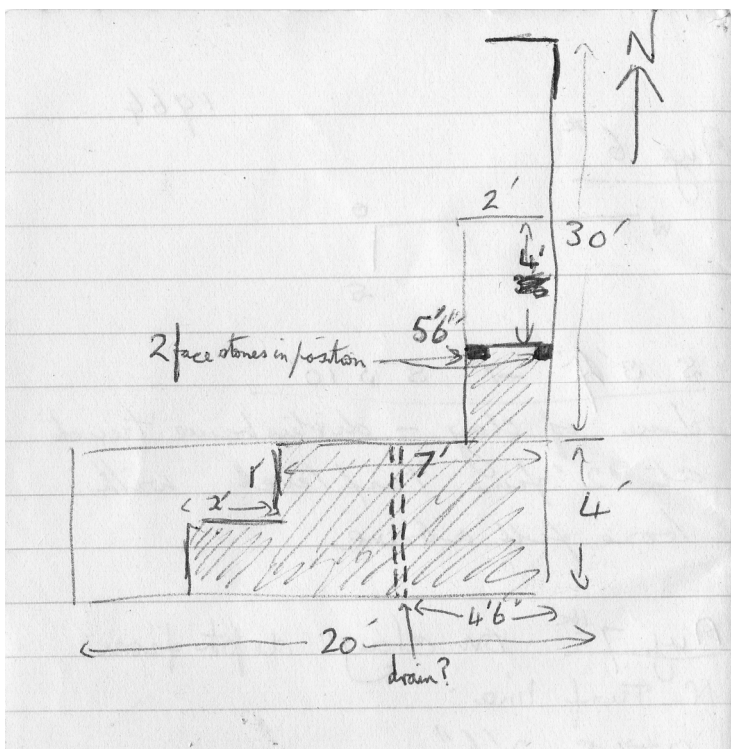 N
2'
30'
4'
5'6"
2 face stones in position
7'
1'
2'
4'
4'6"
20'
drain?
1964